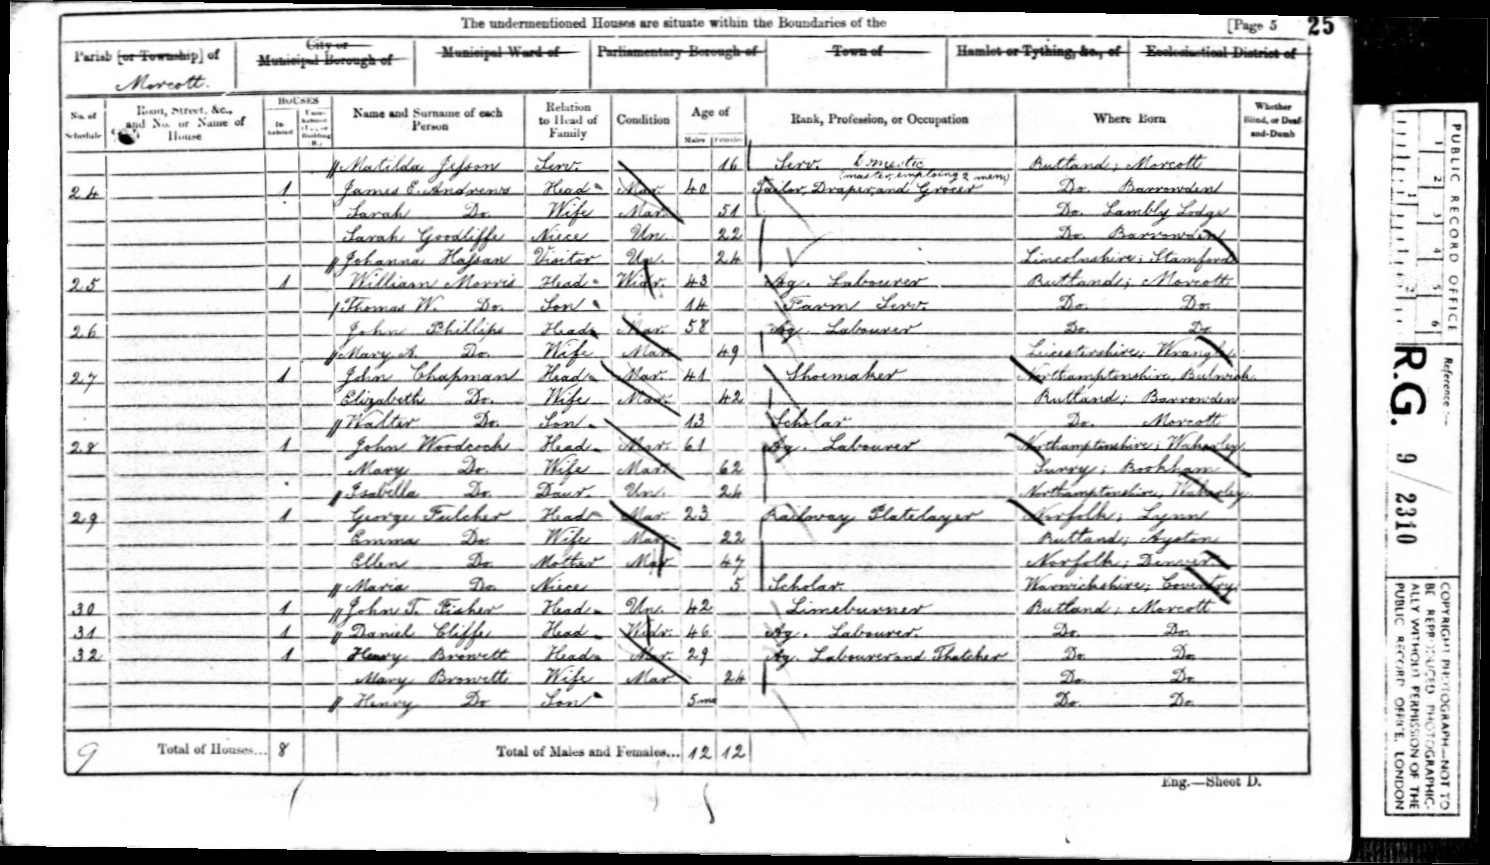 The undermentioned Houses are situate within the Boundaries of the [Page 5 25
Parish [or Township] of City or Municipal Borough of Municipal Ward of Parliamentary Borough of Town of Hamlet or Tything, &c., of Ecclesiastical District of
Morcott.
No. of Schedule Road, Street, &c., and No. or Name of House HOUSES Inhabited Name and Surname of each Person Relation to Head of Family Condition Age of Males Females Rank, Profession, or Occupation Where Born Whether Blind, or Deaf-and-Dumb
Matilda Serv. 16 Serv. Domestic Rutland; Morcott
(master, employing 2 men)
24 1 James E. Andrews Head Mar. 40 Tailor, Draper, and Grocer Do. Barrowden
Sarah Do. Wife Mar. 51 Do. Lambly Lodge
Sarah Goodliffe Niece Un. 22 Do. Barrowden
Johanna Visitor Un. 24 Lincolnshire; Stamford
25 1 William Morris Head Widr. 43 Ag. Labourer Rutland; Morcott
Thomas W. Do. Son 14 Farm Serv. Do. Do.
26 John Phillips Head Mar. 58 Ag. Labourer Do. Do.
Mary A. Do. Wife Mar. 49 Leicestershire;
27 1 John Chapman Head Mar. 41 Shoemaker Northamptonshire, Bulwick
Elizabeth Do. Wife Mar. 42 Rutland; Barrowden
Walter Do. Son 13 Scholar Do. Morcott
28 1 John Woodcock Head Mar. 61 Ag. Labourer Northamptonshire; Wakerley
Mary Do. Wife Mar. 62 Surry; Bookham
Isabella Do. Daur. Un. 24 Northamptonshire; Wakerley
29 1 George Fulcher Head Mar 23 Railway Platelayer Norfolk; Lynn
Emma Do. Wife Mar. 22 Rutland; Ayston
Ellen Do. Mother Mar 47 Norfolk; Denver
Maria Do. Niece 5 Scholar Warwickshire; Coventry
30 1 John T. Fisher Head Un. 42 Limeburner Rutland; Morcott
31 1 Daniel Cliffe Head Widr. 46 Ag. Labourer. Do. Do.
32 1 Henry Browett Head Mar. 29 Ag. Labourer and Thatcher Do. Do.
Mary Browett Wife Mar 24 Do. Do.
Henry Do Son 5 mo Do. Do.
9 Total of Houses... 8 Total of Males and Females... 12 12
Eng.—Sheet D.
PUBLIC RECORD OFFICE
1 2 3 4 5 6
Reference :—
R.G. 9/2310
COPYRIGHT PHOTOGRAPH—NOT TO
BE REPRODUCED PHOTOGRAPHIC-
ALLY WITHOUT PERMISSION OF THE
PUBLIC RECORD OFFICE, LONDON